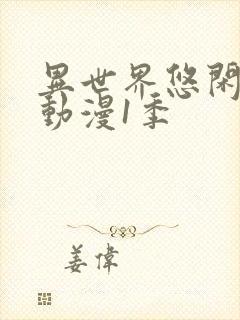 異世界悠閑
動漫1季
姜偉